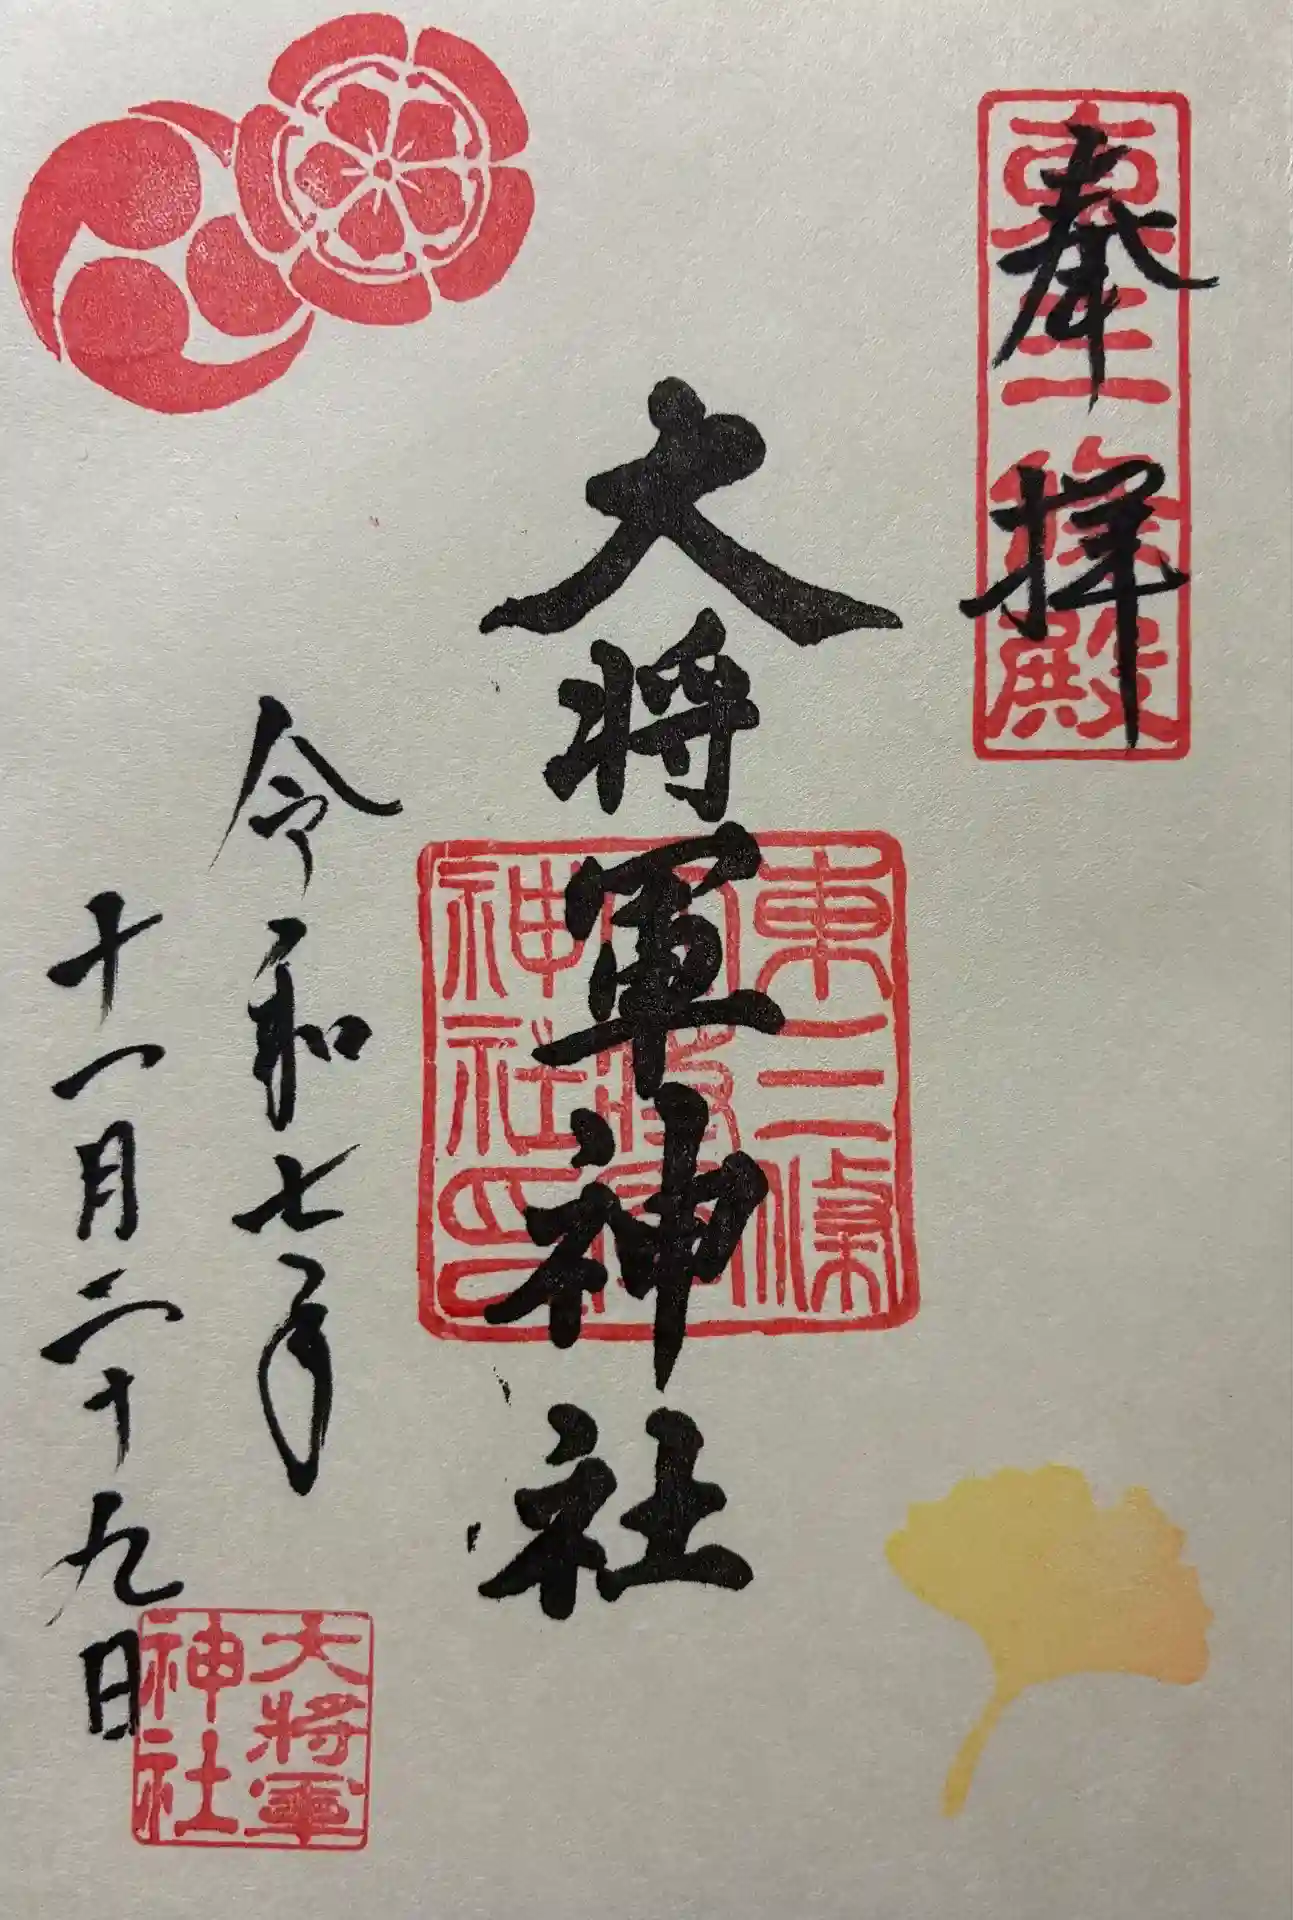 奉拝
東三條殿
大将軍神社
東三條
大將軍
神社印
令和七年
十一月二十九日
大將軍
神社